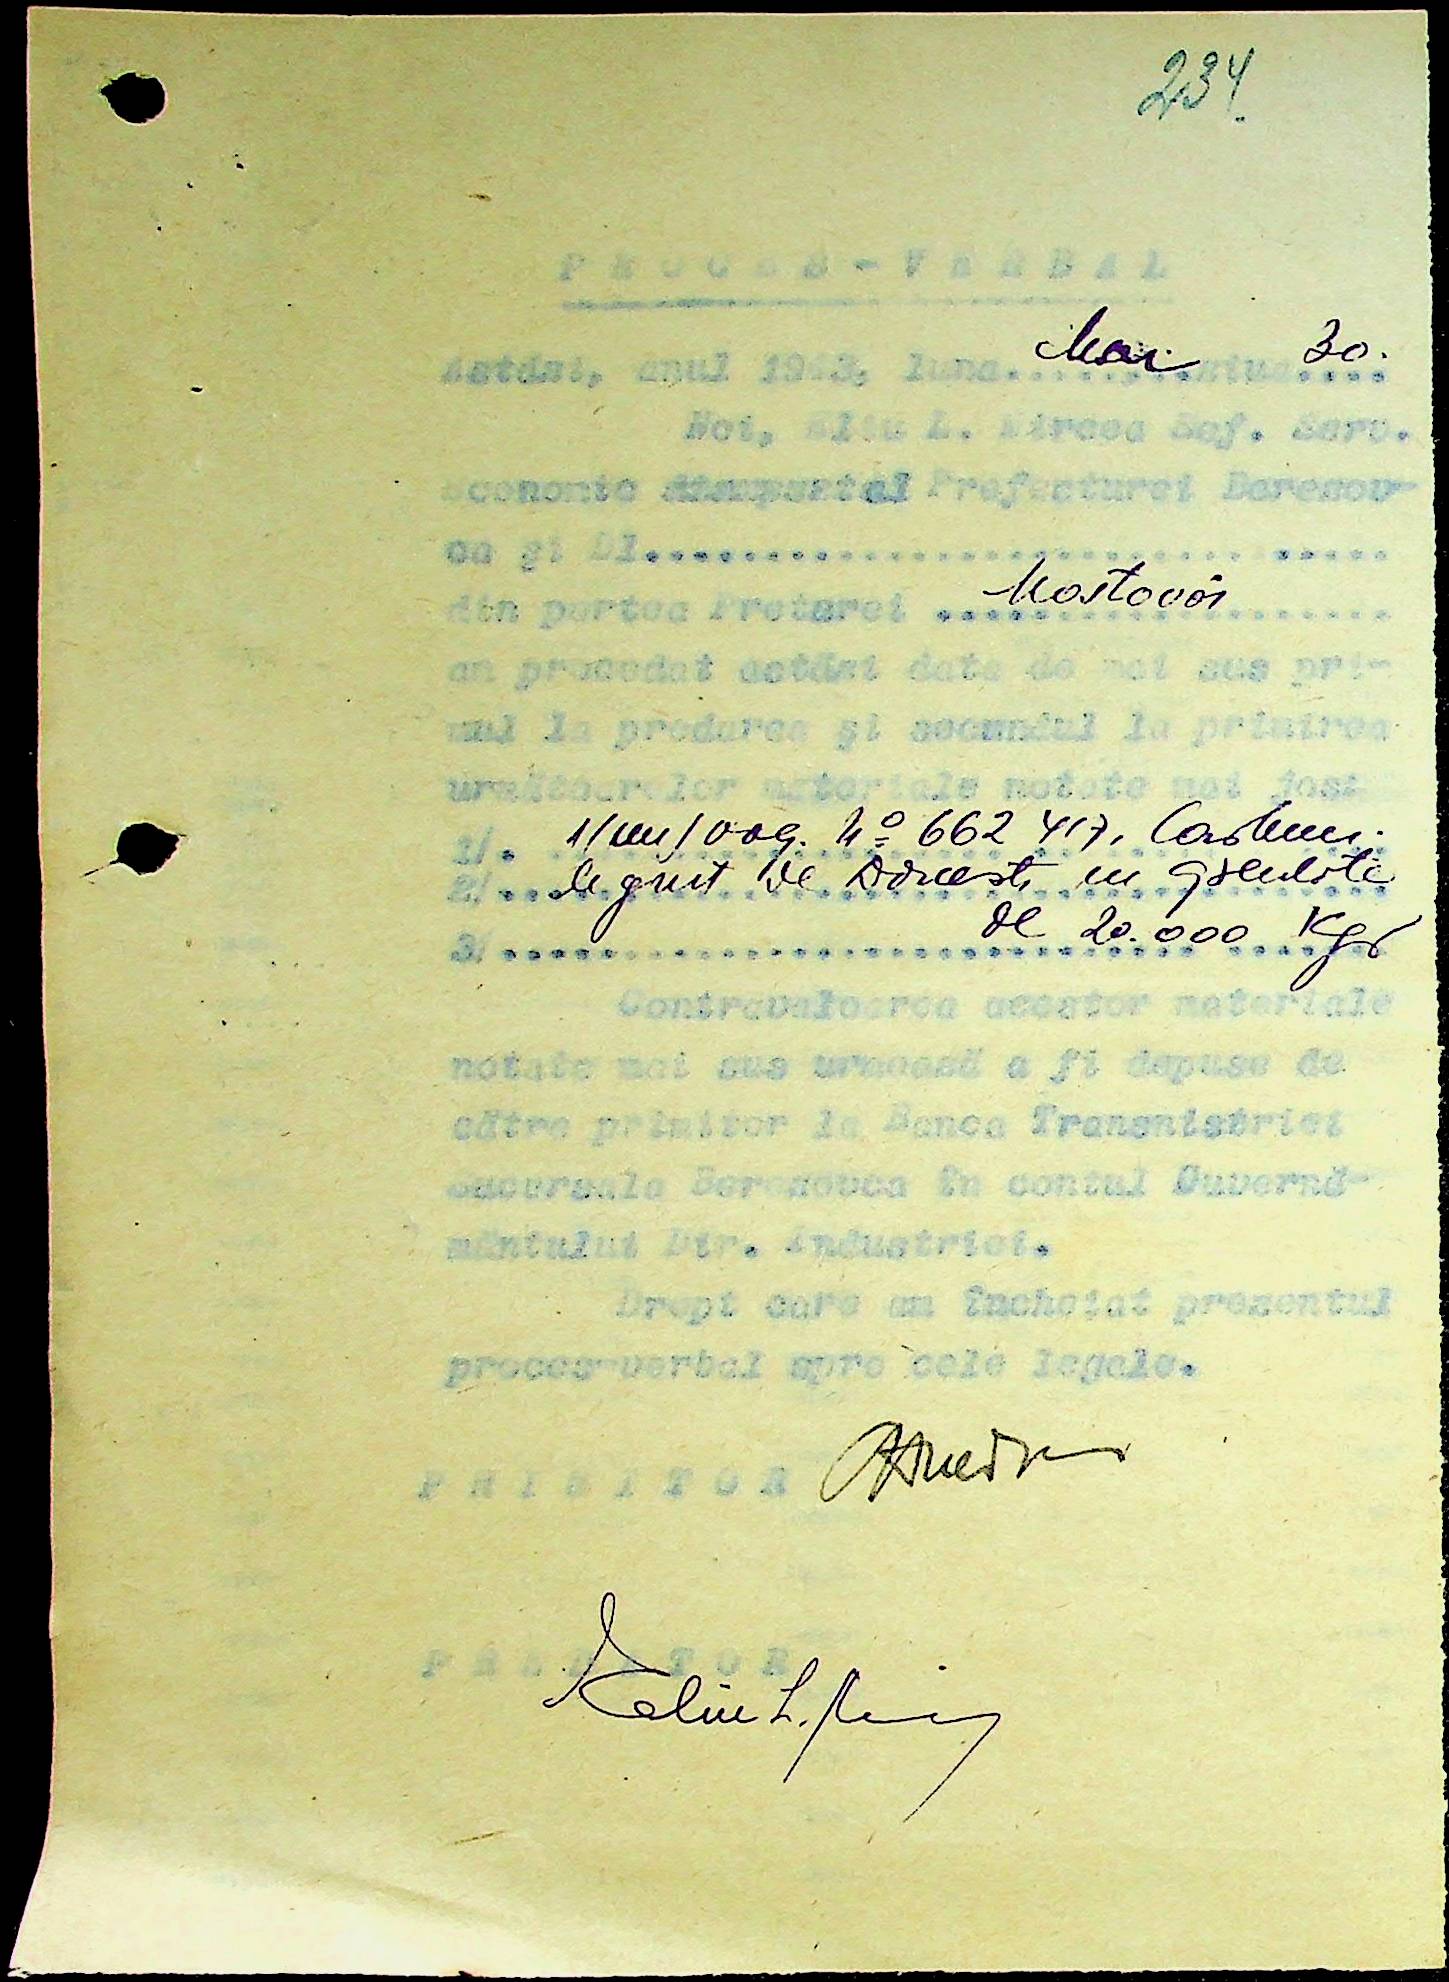 234.
PROCES-VERBAL
Astăzi, anul 1943, luna....Mai....ziua 30.
Noi, Eliu L. Mircea Șef. Serv.
economic al Prefecturei Berezov-
ca și Dl..............................
din partea Preturei ....Mostovoi....
am procedat astăzi data de mai sus pri-
mul la predarea și secundul la primirea
următoarelor materiale notate mai jos:
1/. 1/un/ vag. No 662 417, Carbuni
2/. de Doneti in greutate
3/. de 20.000 Kgr
Contravaloarea acestor materiale
notate mai sus urmează a fi depuse de
către primitor la Banca Transnistriei
sucursala Berezovca în contul Guvernă-
mântului Dir. Industriei.
Drept care am încheiat prezentul
proces-verbal spre cele legale.
PRIMITOR
PREDATOR